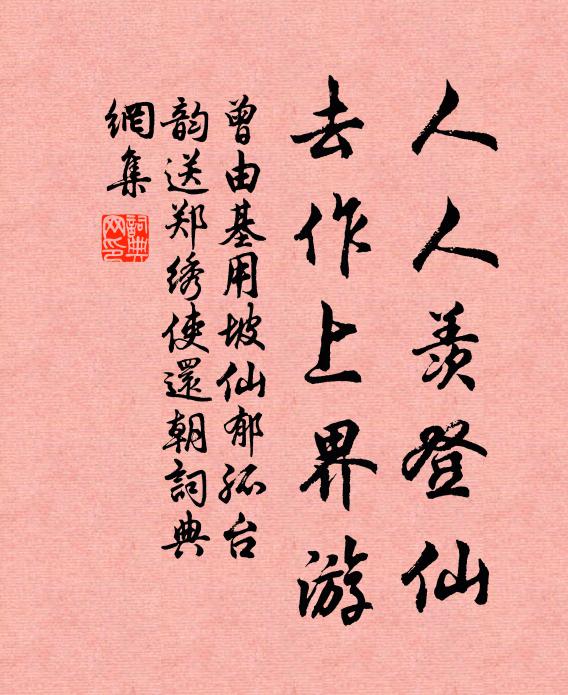 人人羡登仙
去作上界游
曾由基用坡仙郁孤台
韵送郑绣使還朝詞典
網集
詞典網印